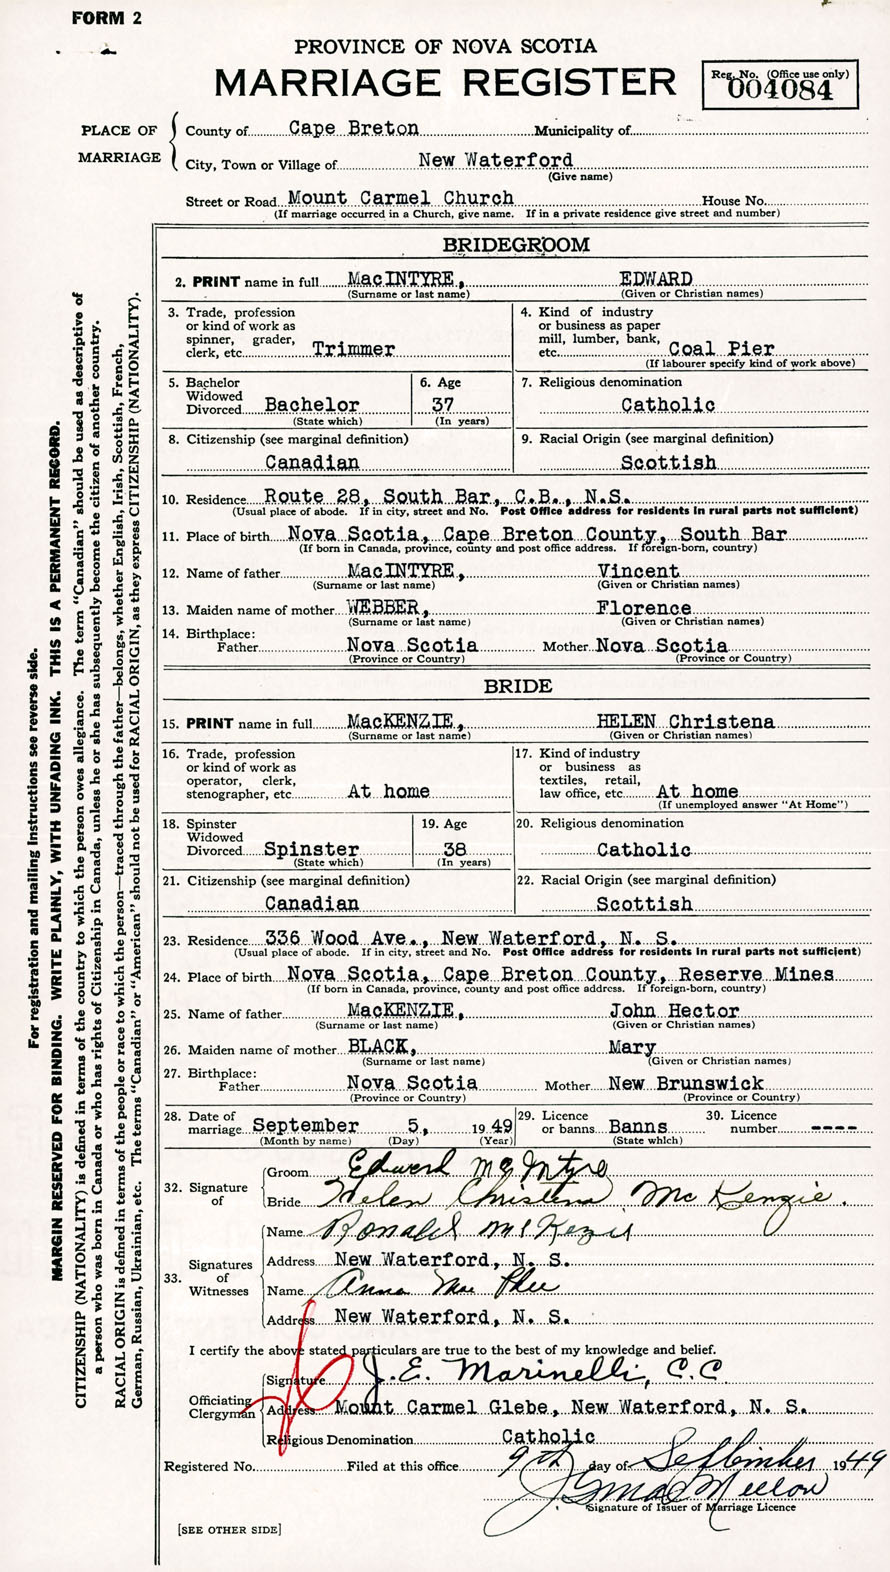 FORM 2
PROVINCE OF NOVA SCOTIA
MARRIAGE REGISTER
Reg. No. (Office use only)
004084
PLACE OF MARRIAGE
County of Cape Breton Municipality of
City, Town or Village of New Waterford
(Give name)
Street or Road Mount Carmel Church House No.
(If marriage occurred in a Church, give name. If in a private residence give street and number)
BRIDEGROOM
2. PRINT name in full MacINTYRE, EDWARD
(Surname or last name) (Given or Christian names)
3. Trade, profession
or kind of work as
spinner, grader,
clerk, etc. Trimmer
4. Kind of industry
or business as paper
mill, lumber, bank,
etc. Coal Pier
(If labourer specify kind of work above)
5. Bachelor
Widowed
Divorced Bachelor
(State which)
6. Age
37
(In years)
7. Religious denomination
Catholic
8. Citizenship (see marginal definition)
Canadian
9. Racial Origin (see marginal definition)
Scottish
10. Residence Route 28, South Bar, C.B., N.S.
(Usual place of abode. If in city, street and No. Post Office address for residents in rural parts not sufficient)
11. Place of birth Nova Scotia, Cape Breton County, South Bar
(If born in Canada, province, county and post office address. If foreign-born, country)
12. Name of father MacINTYRE, Vincent
(Surname or last name) (Given or Christian names)
13. Maiden name of mother WEBBER, Florence
(Surname or last name) (Given or Christian names)
14. Birthplace:
Father Nova Scotia Mother Nova Scotia
(Province or Country) (Province or Country)
BRIDE
15. PRINT name in full MacKENZIE, HELEN Christena
(Surname or last name) (Given or Christian names)
16. Trade, profession
or kind of work as
operator, clerk,
stenographer, etc. At home
17. Kind of industry
or business as
textiles, retail,
law office, etc. At home
(If unemployed answer "At Home")
18. Spinster
Widowed
Divorced Spinster
(State which)
19. Age
38
(In years)
20. Religious denomination
Catholic
21. Citizenship (see marginal definition)
Canadian
22. Racial Origin (see marginal definition)
Scottish
23. Residence 336 Wood Ave., New Waterford, N. S.
(Usual place of abode. If in city, street and No. Post Office address for residents in rural parts not sufficient)
24. Place of birth Nova Scotia, Cape Breton County, Reserve Mines
(If born in Canada, province, county and post office address. If foreign-born, country)
25. Name of father MacKENZIE, John Hector
(Surname or last name) (Given or Christian names)
26. Maiden name of mother BLACK, Mary
(Surname or last name) (Given or Christian names)
27. Birthplace:
Father Nova Scotia Mother New Brunswick
(Province or Country) (Province or Country)
28. Date of
marriage September 5, 1949
(Month by name) (Day) (Year)
29. Licence
or banns Banns
(State which)
30. Licence
number ----
32. Signature of
Groom Edward McIntyre
Bride Helen Christena McKenzie.
33. Signatures of Witnesses
Name Ronald McKezie
Address New Waterford, N. S.
Name Anna Mac Phee
Address New Waterford, N. S.
I certify the above stated particulars are true to the best of my knowledge and belief.
Officiating Clergyman
Signature J. E. Marinelli, C.C
Address Mount Carmel Glebe, New Waterford, N. S.
Religious Denomination Catholic
Registered No. Filed at this office 9th day of September 1949
Signature of Issuer of Marriage Licence
[SEE OTHER SIDE]
For registration and mailing instructions see reverse side.
MARGIN RESERVED FOR BINDING. WRITE PLAINLY, WITH UNFADING INK. THIS IS A PERMANENT RECORD.
CITIZENSHIP (NATIONALITY) is defined in terms of the country to which the person owes allegiance. The term "Canadian" should be used as descriptive of
a person who was born in Canada or who has rights of Citizenship in Canada, unless he or she has subsequently become the citizen of another country.
RACIAL ORIGIN is defined in terms of the people or race to which the person—traced through the father—belongs, whether English, Irish, Scottish, French,
German, Russian, Ukrainian, etc. The terms "Canadian" or "American" should not be used for RACIAL ORIGIN, as they express CITIZENSHIP (NATIONALITY).